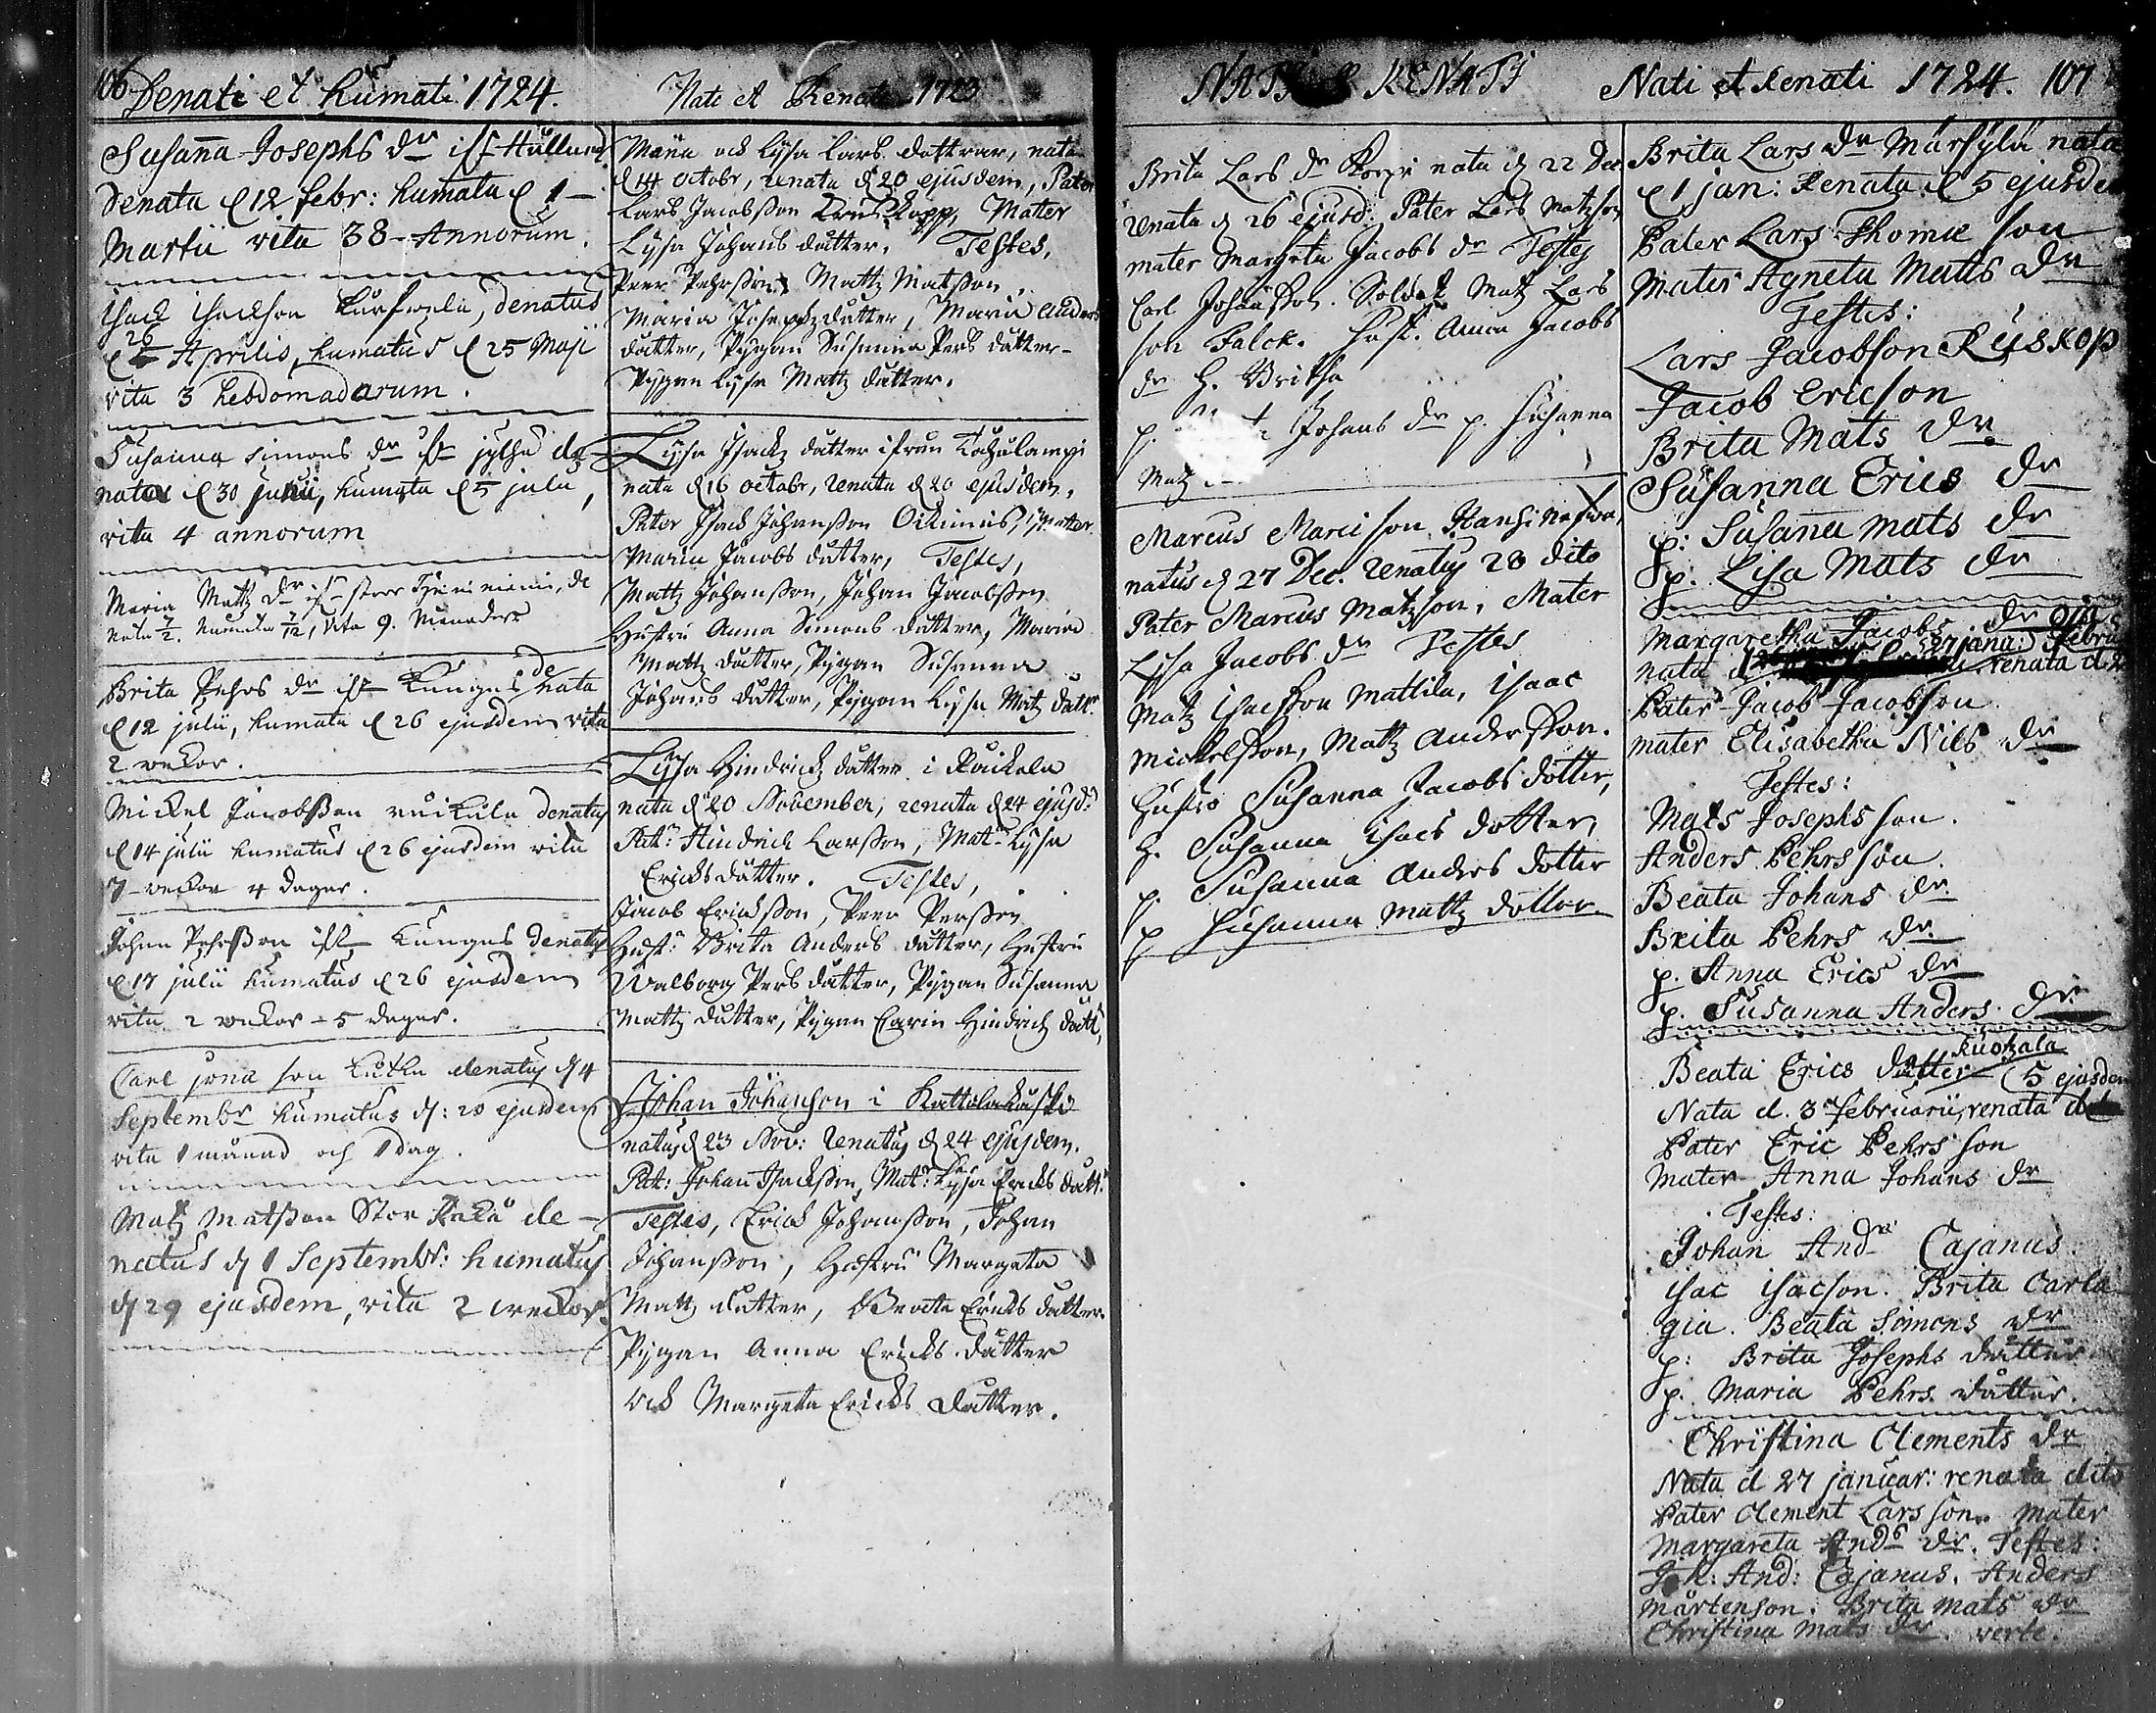 106 Denati et humati 1724.
Susanna Josephs dr ifr Hullun
Denata d 12 febr: humata d 1
Martii vita 38 Annorum.
Isack Isackson denatus
26
d Aprilis, humatus d 25 Maji
vita 3 hebdomadarum.
Susanna Simons dr ifr de
nata d 30 junii, humata d 5 julii,
vita 4 annorum
Maria Mattz dr ifr de
nata 7/2. humata 7/12, vita 9. Månader
Brita Pehrs dr ifr Kangas denata
d 12 julii, humata d 26 ejusdem vita
2 wekor.
Mickel Jacobsson denatus
d 14 julii humatus d 26 ejusdem vita
7 wekor 4 dagar.
Johan Pehrsson ifr Kangas denatus
d 17 julii humatus d 26 ejusdem
vita 2 wekor 5 dagar.
Carl son denatus d 4
Septembr humatus d: 20 ejusdem
vita 1 månad och 1 dag.
Matz Matsson Stor de-
natus d 1 Septembr: humatus
d 29 ejusdem, vita 2 weckor.
Nati et Renati 1723
och Lysa Lars dottrar, nata
d 14 octobr, renata d 20 ejusdem, Pater
Lars Jacobsson Matter
Lysa Johans dotter. Testes,
Peer Pehrsson, Mattz Matsson,
Maria Josephz dotter, Maria Anders
dotter, Pygan Susanna Pers dotter
Pygan Lysa Mattz dotter.
Lysa Isackz dotter ifrån
nata d 16 octobr, renata d 20 ejusdem,
Pater Isack Johansson Matter
Maria Jacobs dotter, Testes,
Mattz Johansson, Johan Jacobsson
Hustru Anna Simons dotter, Maria
Mattz dotter, Pygan Susanna
Johans dotter, Pygan Lysa Matz dott:
Lysa Hindrickz dotter i
nata d 20 November, renata d 24 ejusd:
Pat: Hindrich Larsson, Mat: Lysa
Ericks dotter. Testes,
Jacob Ericksson, Peer Persson
Hust: Brita Anders dotter, Hustru
Walborg Pers dotter, Pygan Susanna
Mattz dotter, Pygan Carin Hindrich dott,
Johan Johanson i
natus d 23 Nov: renatus d 24 ejusdem.
Pat: Johan Isackson, Mat: Lysa Ericks dott:
Testes, Erick Johansson, Johan
Johansson, Hustru Margeta
Matz dotter, Beata Ericks dotter
Pygan Anna Ericks dotter
och Margeta Ericks dotter.
NATI RENATI
Brita Lars dr nata d 22 Dec
renata d 26 ejusd: Pater Lars Matzson
mater Margeta Jacobs dr Testes
Carl Johansson. Soldat Matz Lars
son Falck. Hust. Anna Jacobs
dr H. Britha
p. Johans dr p. Susanna
Matz
Marcus Marcison
natus d 27 Dec. renatus 28 dito
Pater Marcus Matzson, Mater
Lysa Jacobs dr Testes
Matz Isacsson Mattila, Isaac
Mickelsson, Mattz Andersson.
Hustro Susanna Jacobs dotter,
H. Susanna Isacs dotter,
p. Susanna Anders dotter
p Susanna Mattz dotter
Nati et Renati 1724. 107
Brita Lars dr nata
d 1 jan: Renata d 5 ejusde
Pater Lars Thomæ son
Mater Agneta Matts dr
Testes:
Lars Jacobson Ryskop
Jacob Ericson
Brita Mats dr
Susanna Erics dr
p: Susana mats dr
p. Lisa Mats dr
Margaretha Jacobs dr
27 janu: febru
nata d renata d 2
Pater Jacob Jacobson
mater Elisabetha Nils dr
Testes:
Mats Josephs son.
Anders Pehrs son.
Beata Johans dr
Brita Pehrs dr
p. Anna Erics dr
p. Susanna Anders dr
Beata Erics dotter
5 ejusdem
Nata d. 3 februarii, renata d
Pater Eric Pehrs son
Mater Anna Johans dr
Testes:
Johan And: Cajanus.
isac isacson. Brita Carla
gia. Beata Simons dr
p: Brita Josephs dotter
p. Maria Pehrs dotter.
Christina Clements dr
Nata d 27 januar: renata dito
Pater Clement Lars son. Mater
Margareta Ands dr. Testes:
Joh: And: Cajanus. Anders
Mårtenson. Brita Mats dr
Christina Mats dr. verte.